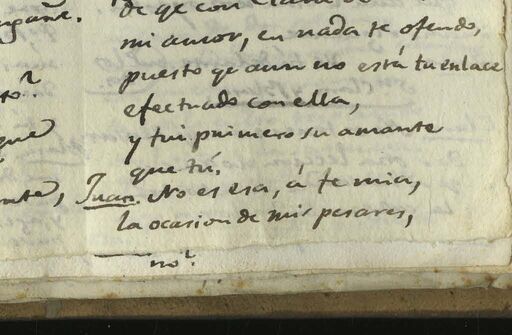 de qe con Clara
mi amor, en nada te ofendo,
puesto qe aun no está tu enlace
efectuado con ella,
y fui primero su amante
que tú.
Juan. No es esa, á fe mia,
la ocasion de mis pesares,
no?